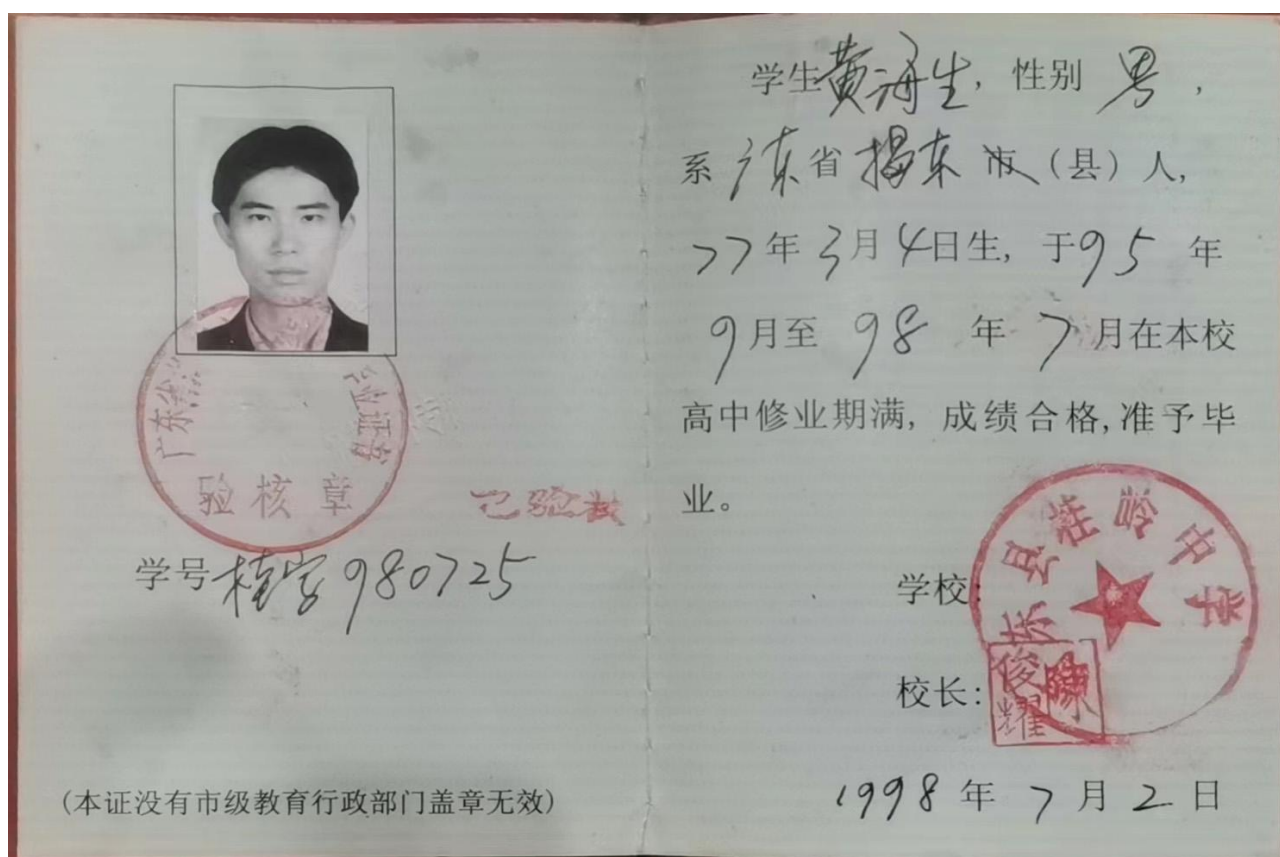 广东
业证书
验核章
已验核
学号 桂字980725
(本证没有市级教育行政部门盖章无效)
学生黄海生,性别 男,
系 广东省揭东市(县)人,
77年3月4日生,于95年
9月至98年7月在本校
高中修业期满,成绩合格,准予毕
业。
学校:
东县桂岭中学
校长:
陈俊耀
1998年7月2日